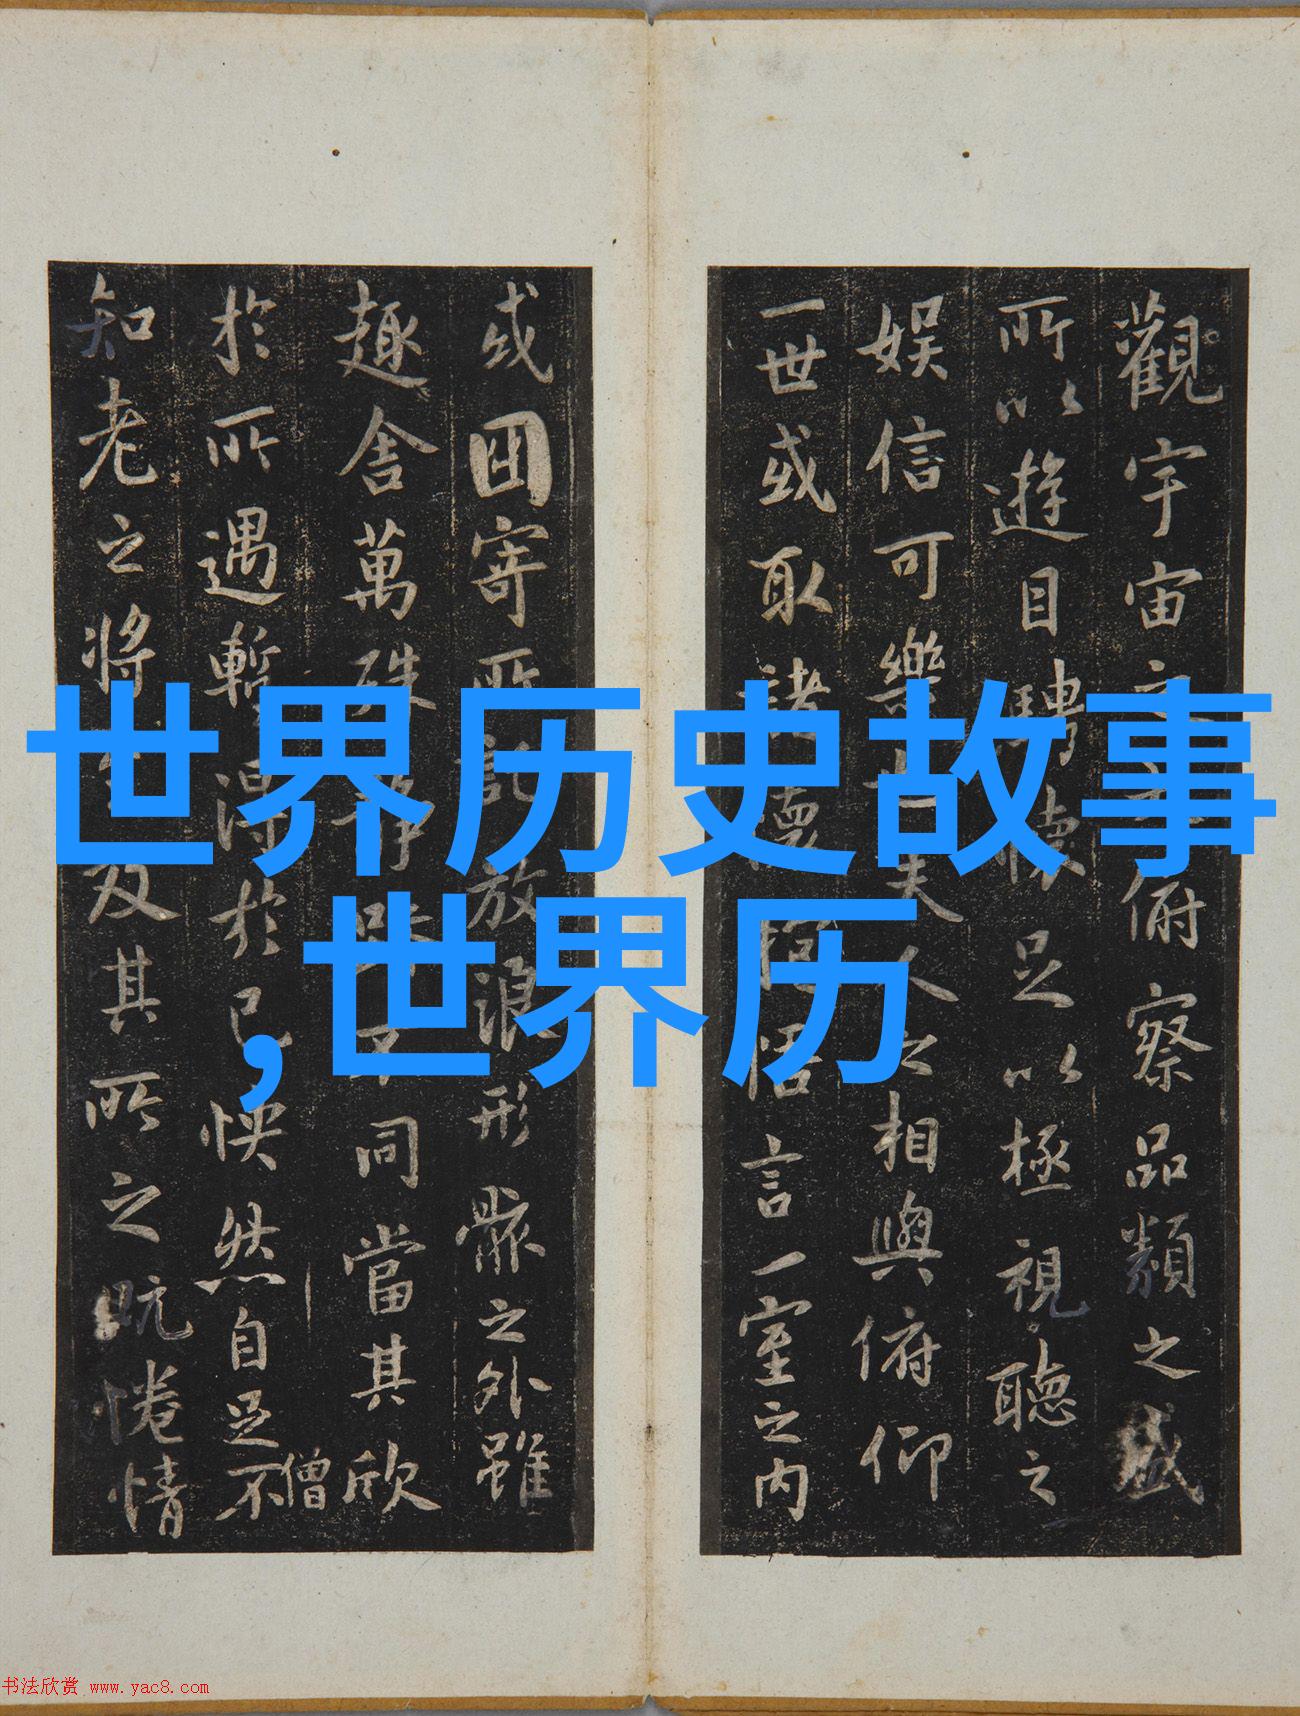 觀宇宙之俯察品類之盛
所以遊目騁懷足以極視聽之
娛信可樂也夫人之相與俯仰
一世或取諸懷抱悟言一室之內
或因寄所託放浪形骸之外雖
趣舍萬殊靜躁不同當其欣
僧
於所遇暫得於己怏然自足不
知老之將至及其所之既惓情
世界历史故事
,世界历
书法欣赏 www.yac8.com